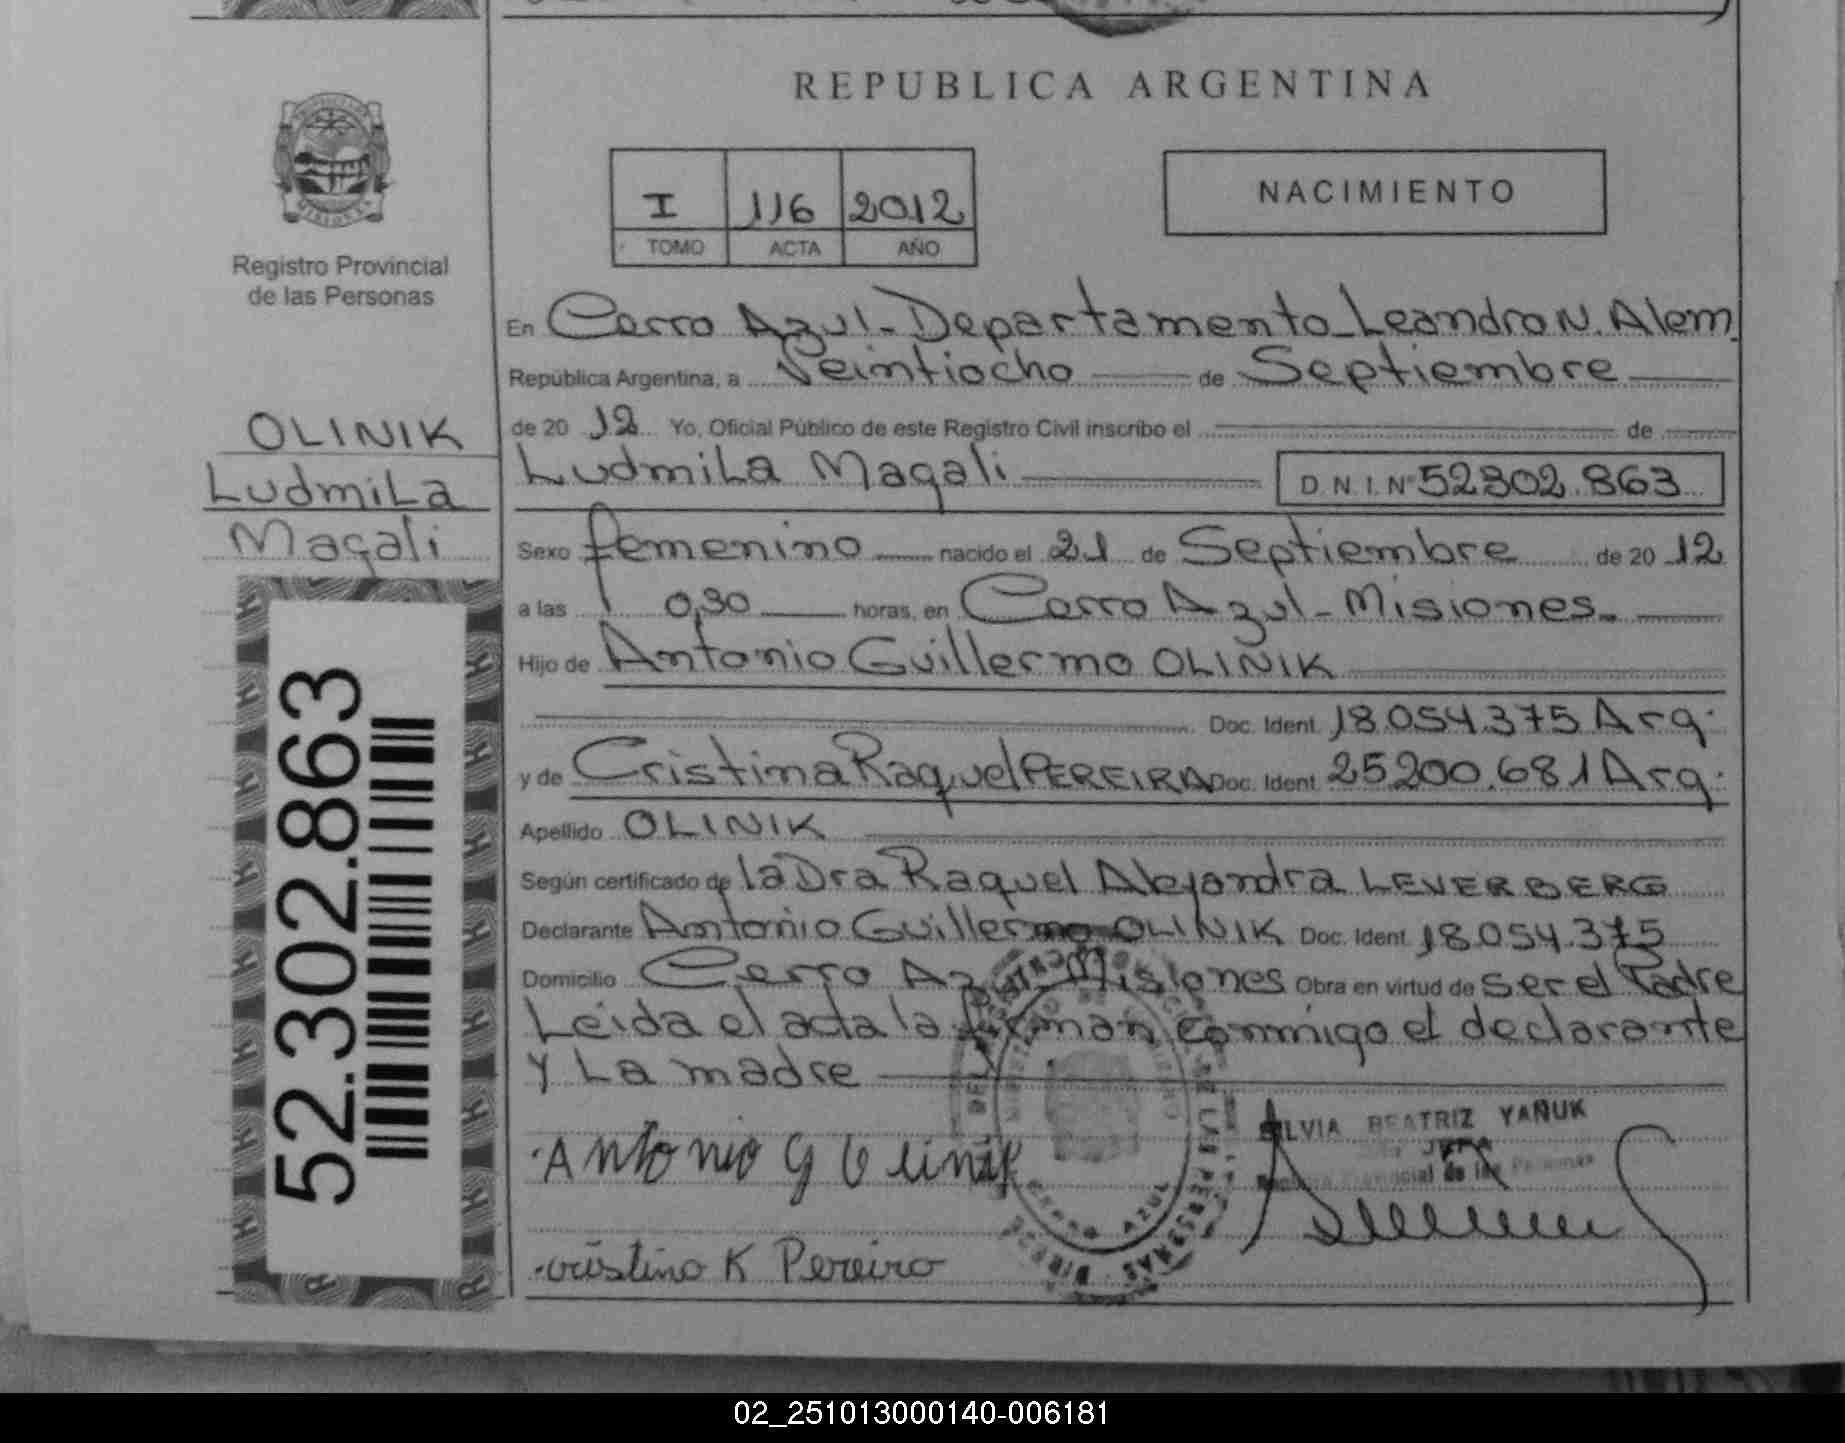 REPUBLICA ARGENTINA
I 116 2012
TOMO ACTA AÑO
NACIMIENTO
Registro Provincial
de las Personas
OLINIK
Ludmila
Magali
52.302.863
En Cerro Azul - Departamento Leandro N. Alem
República Argentina, a Veintiocho de Septiembre
de 20 12 Yo, Oficial Público de este Registro Civil inscribo el de
Ludmila Magali D.N.I. Nº 52302.863
Sexo femenino nacido el 21 de Septiembre de 20 12
a las 0,30 horas, en Cerro Azul - Misiones.
Hijo de Antonio Guillermo OLINIK
Doc. Ident. 18.054.375 Arg.
y de Cristina Raquel PEREIRA Doc. Ident. 25.200.681 Arg.
Apellido OLINIK
Según certificado de la Dra Raquel Alejandra LEVERBERG
Declarante Antonio Guillermo OLINIK Doc. Ident. 18.054.375
Domicilio Cerro Azul Misiones Obra en virtud de ser el Padre
Leida el acta la firman conmigo el declarante
y La madre
SILVIA BEATRIZ YAÑUK
JEFA
Provincial de las Personas
Antonio G Olinik
Cristina R Pereira
CERRO AZUL
DE LAS PERSONAS
02_251013000140-006181